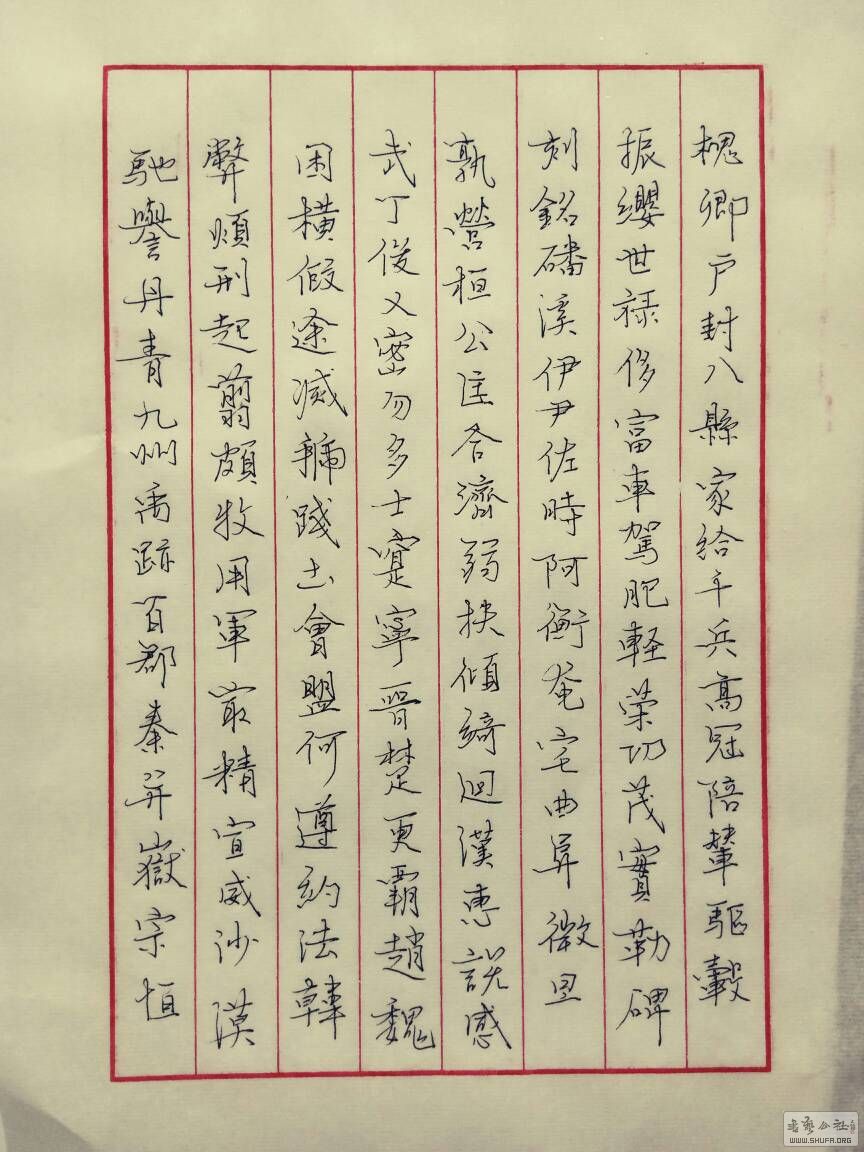 槐卿户封八縣家給千兵高冠陪輦驅轂
振纓世禄侈富車駕肥軽荣功茂實勒碑
刻銘磻溪伊尹佐時阿衡奄宅曲阜微旦
孰營桓公匡合濟弱扶傾綺迴漢惠說感
武丁俊乂密勿多士寔寧晋楚更霸趙魏
困橫假途滅虢踐土會盟何遵約法韓
弊煩刑起翦頗牧用軍最精宣威沙漠
馳譽丹青九州禹跡百郡秦并嶽宗恒
書藝公社
WWW.SHUFA.ORG